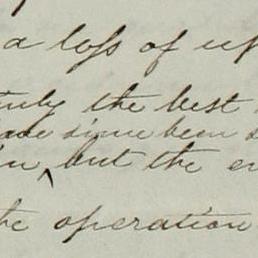 a loss of up
truly the best
have since been s
in, but the en
the operation